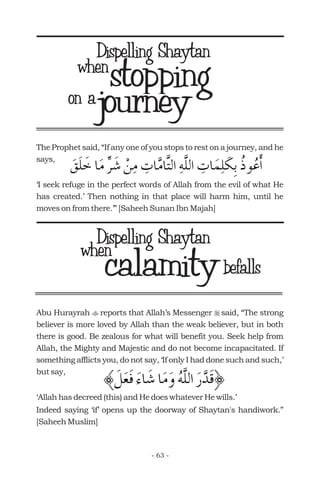 Dispelling Shaytan
when stopping
on a journey
The Prophet said, “If any one of you stops to rest on a journey, and he
says,
أَعُوذُ بِكَلِمَاتِ اللَّهِ التَّامَّاتِ مِنْ شَرِّ مَا خَلَقَ
‘I seek refuge in the perfect words of Allah from the evil of what He
has created.’ Then nothing in that place will harm him, until he
moves on from there.’” [Saheeh Sunan Ibn Majah]
Dispelling Shaytan
when
calamity befalls
Abu Hurayrah ﷺ reports that Allah’s Messenger ﷺ said, “The strong
believer is more loved by Allah than the weak believer, but in both
there is good. Be zealous for what will benefit you. Seek help from
Allah, the Mighty and Majestic and do not become incapacitated. If
something afflicts you, do not say, ‘If only I had done such and such,’
but say,
﴿قَدَّرَ اللَّهُ وَمَا شَاءَ فَعَلَ﴾
‘Allah has decreed (this) and He does whatever He wills.’
Indeed saying ‘if’ opens up the doorway of Shaytan's handiwork.”
[Saheeh Muslim]
- 63 -